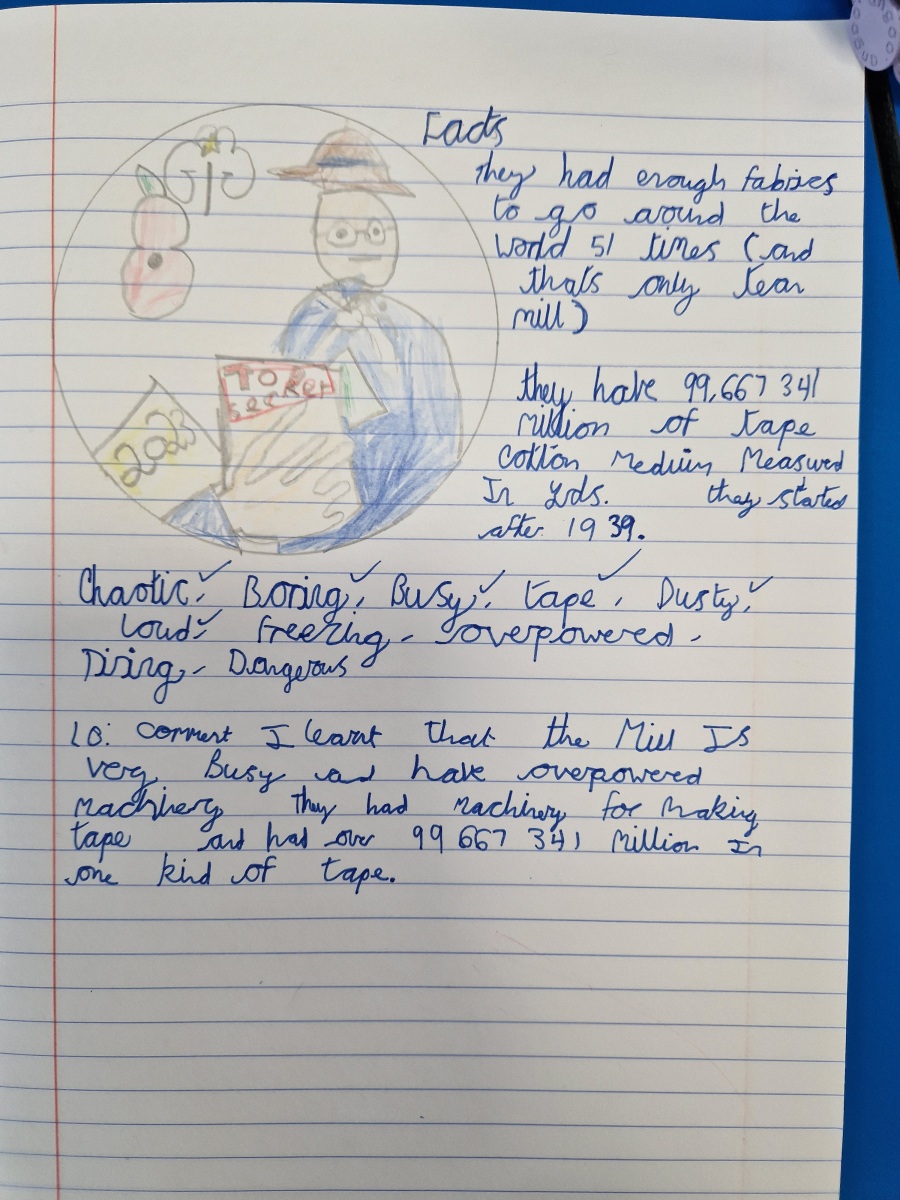 Facts
they had enough fabires
to go around the
world 51 times (and
thats only tean
mill)
they have 99,667 341
million of tape
cotton medium measured
In yds. they started
after 1939.
TOP
SECRET
2023
Chaotic, Boring, Busy, tape, Dusty,
Loud, freezing, overpowered,
Tiring, Dangerous
LO: comment I learnt that the Mill Is
very Busy and have overpowered
machinery they had machinery for making
tape and had over 99 667 341 million In
one kind of tape.